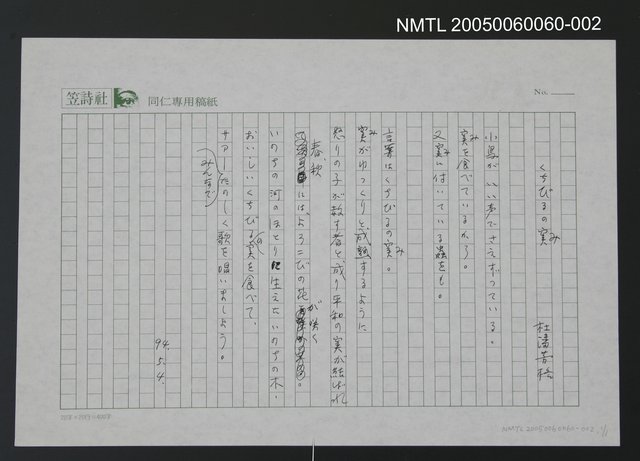 NMTL 20050060060-002
笠詩社 同仁専用稿紙
No.
くちびるの実み
杜潘芳格
小鳥が いい声でさえずっている。
実みを食べているから。
又実みに付いている蟲をも。
言葉はくちびるの実み。
実みがゆっくりと成熟するように
怒りの子が赦す者と成り平和の実が結ばれ
春、秋には、よろこびの花が咲く。
いのちの河のほとりに生えたいのちの木、
おいしいくちびるの実を食べて、
サァーたのしく歌を唱いましょう。
みんなで
94.
5.4.
20字×20行=400字
NMTL 20050060060-002